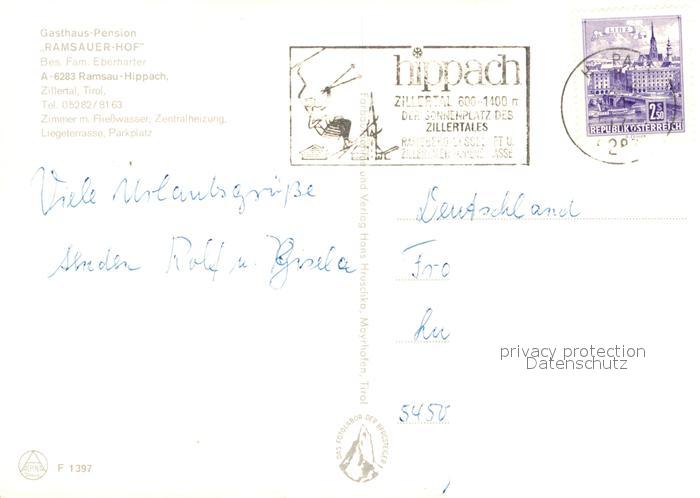 Gasthaus-Pension
„RAMSAUER-HOF"
Bes. Fam. Eberharter
A-6283 Ramsau-Hippach,
Zillertal, Tirol,
Tel. 05282/8163
Zimmer m. Fließwasser, Zentralheizung,
Liegeterrasse, Parkplatz
hippach
ZILLERTAL 600-1400 m
DER SONNENPLATZ DES
ZILLERTALES
LINZ
2S50
REPUBLIK ÖSTERREICH
Viele Urlaubsgrüße
senden Rolf u. Gisela
und Verlag Hans Hruschka, Mayrhofen, Tirol
Deutschland
Fro
5450
privacy protection
Datenschutz
DAS FOTOLABOR DER BERGSTEIGER
F 1397